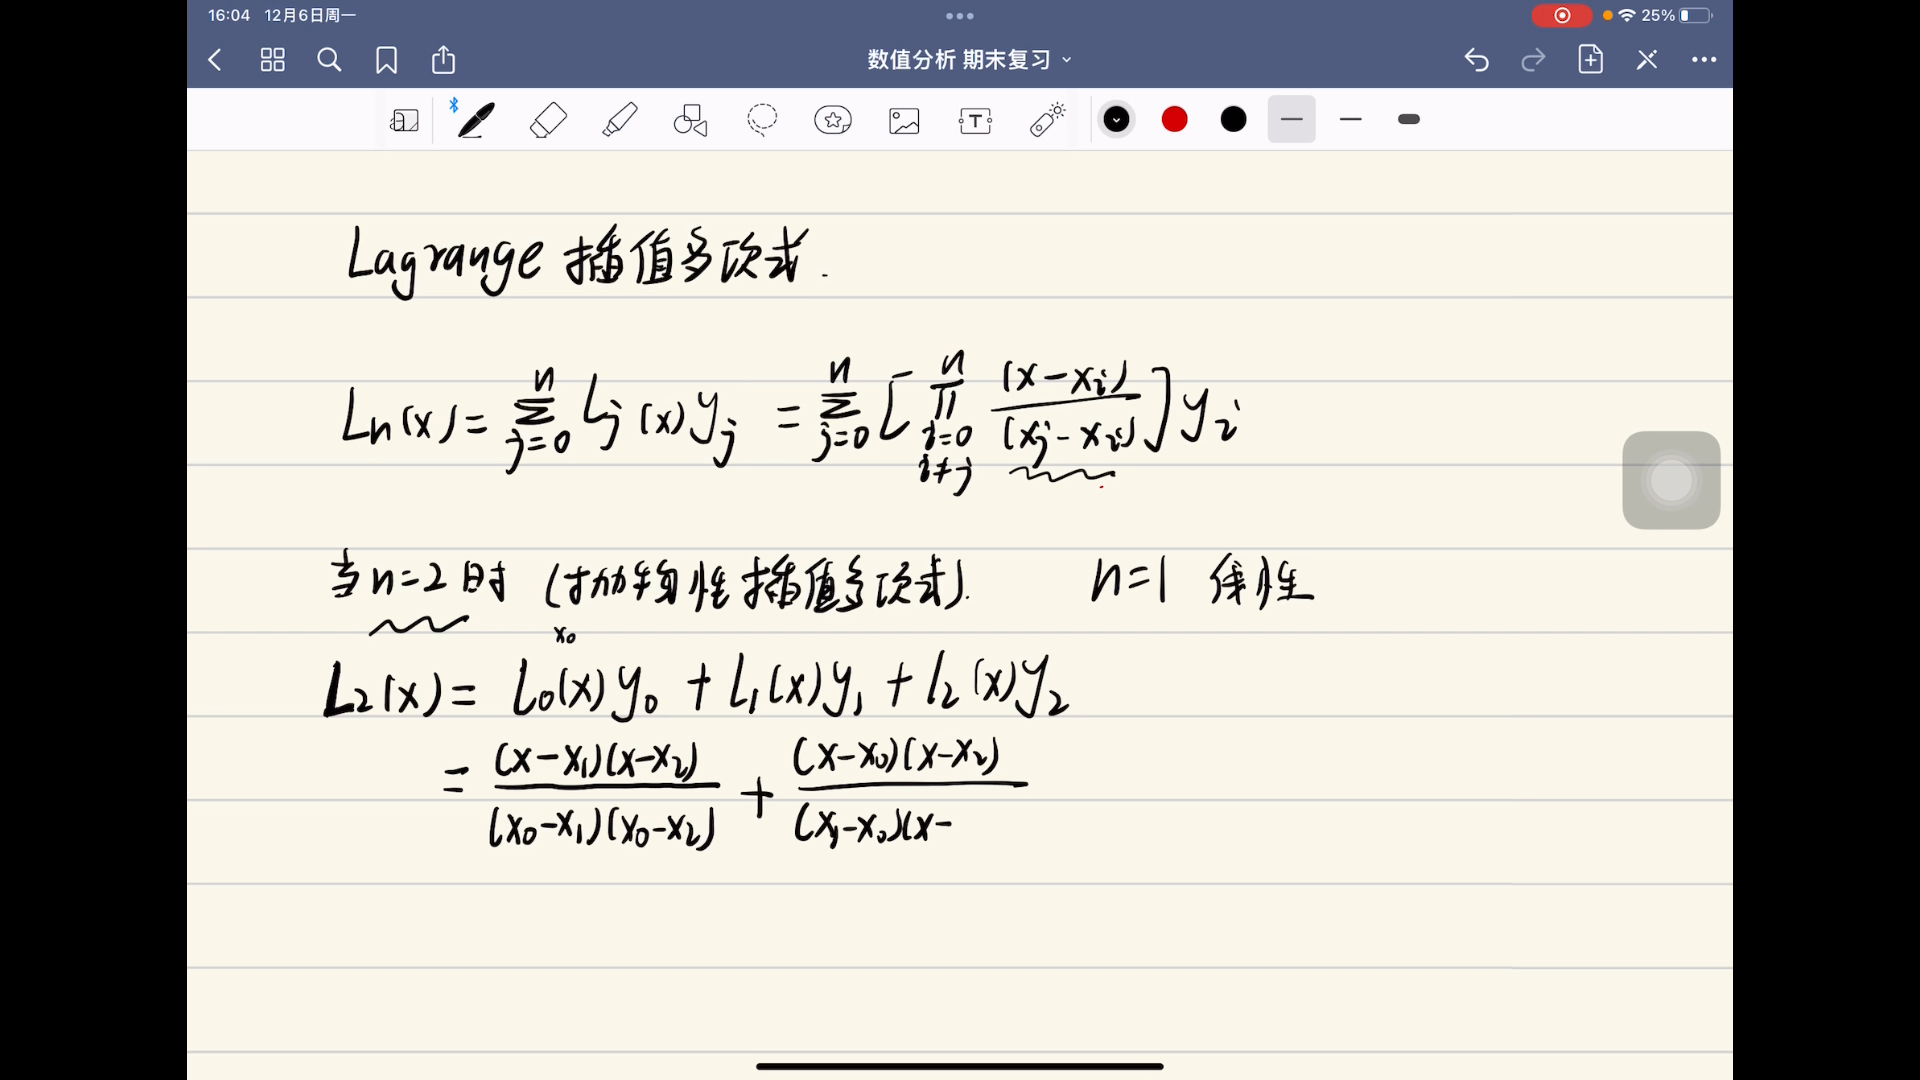 16:04 12月6日周一 25%
数值分析 期末复习
Lagrange 插值多项式.
Ln(x) = Σ_{j=0}^{n} lj(x)yj = Σ_{j=0}^{n} [ Π_{i=0, i≠j}^{n} (x-xi)/(xj-xi) ] yi
当 n=2 时 (抛物线性插值多项式). n=1 线性
x0
L2(x) = l0(x)y0 + l1(x)y1 + l2(x)y2
= (x-x1)(x-x2)/(x0-x1)(x0-x2) + (x-x0)(x-x2)/(x1-x0)(x-